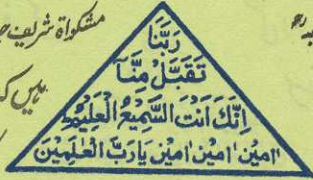 مشکواة شریف
رَبَّنَا
تَقَبَّلْ مِنَّا
اِنَّكَ اَنْتَ السَّمِيْعُ الْعَلِيْمُ
امین امین امین یَارَبَّ الْعٰلَمِیْنَ